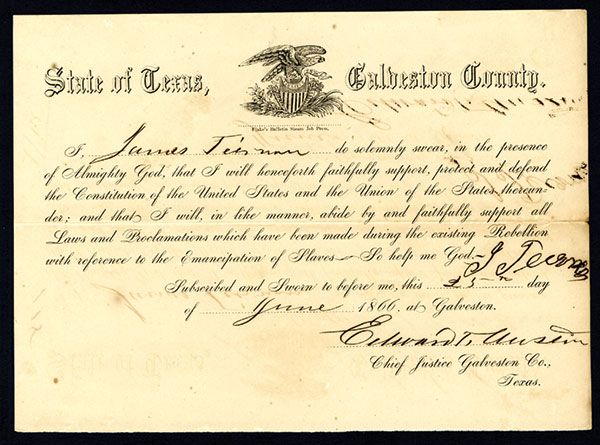 State of Texas, Galveston County.
Blake's Bulletin Steam Job Press,
I, James Tiernan do solemnly swear, in the presence
of Almighty God, that I will henceforth faithfully support, protect and defend
the Constitution of the United States and the Union of the States thereun-
der; and that I will, in like manner, abide by and faithfully support all
Laws and Proclamations which have been made during the existing Rebellion
with reference to the Emancipation of Slaves—So help me God.—J Tiernan
Subscribed and Sworn to before me, this day
of June 1866, at Galveston.
Edward T. Austin
Chief Justice Galveston Co.,
Texas.